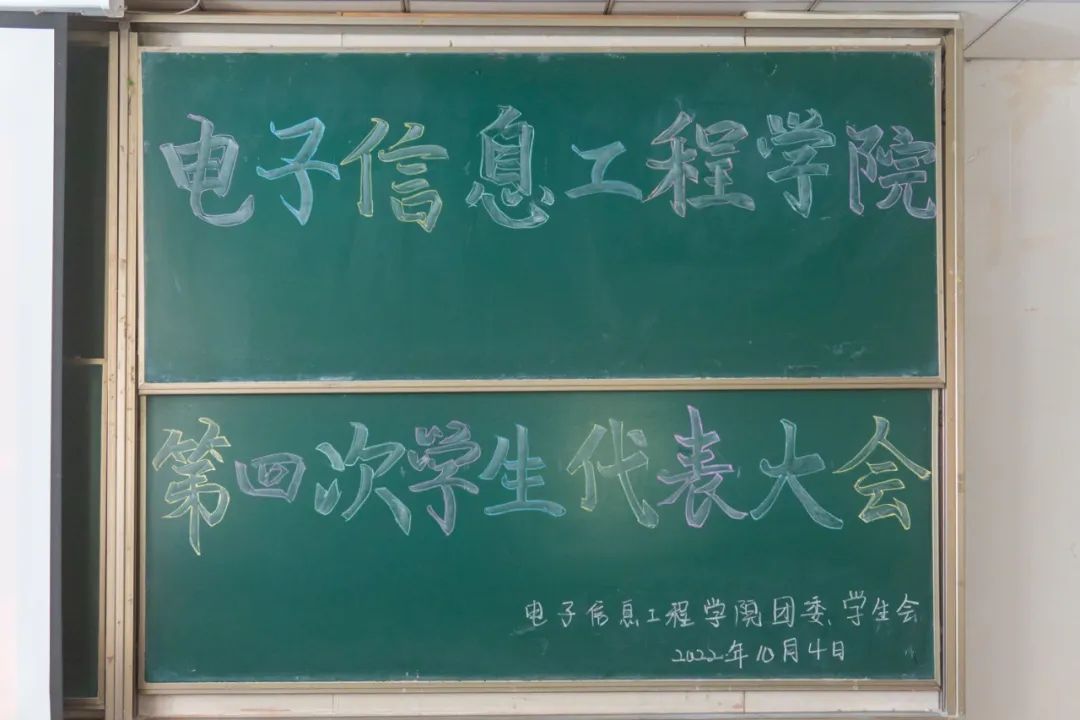 电子信息工程学院
第四次学生代表大会
电子信息工程学院团委、学生会
2022年10月4日